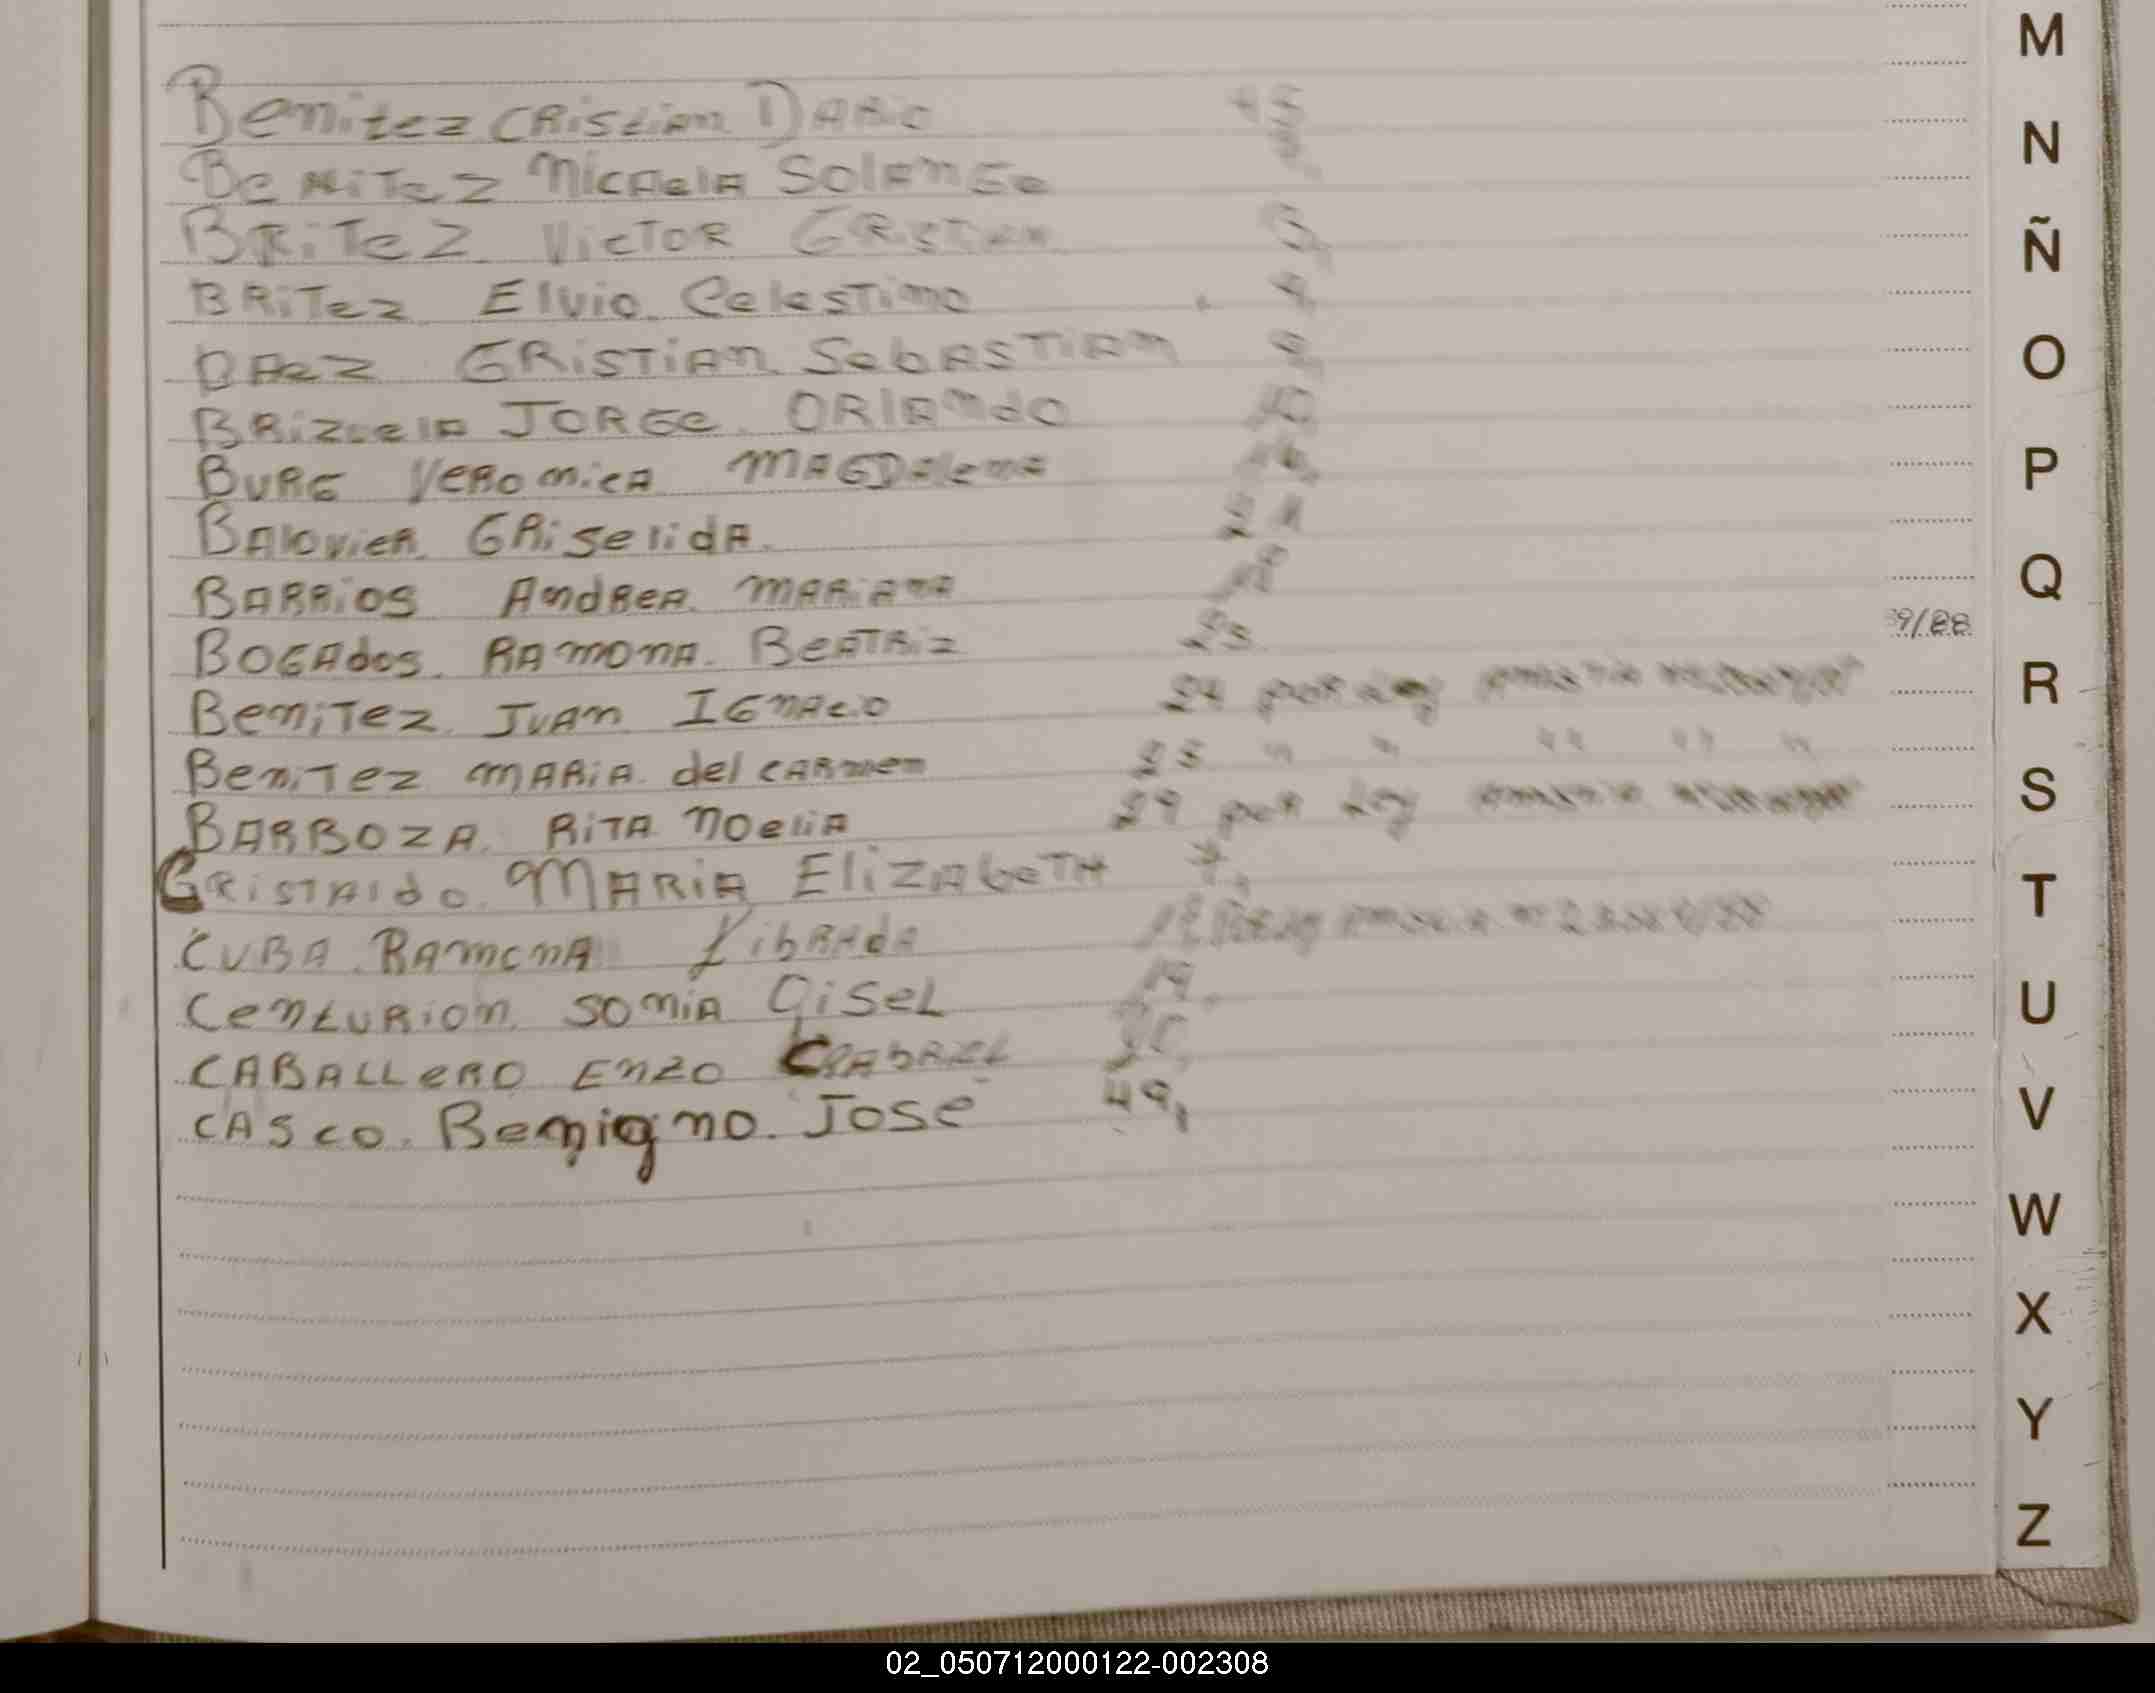 Benitez CRistian DARio 45
BeNiTez MicAelA SolAnGe
BRiTeZ VicToR CRiSTiAn 3,
BRiTez Elvio CelesTino 4,
BAez CRiSTiAn SebASTiAn 9,
BRizuelA JORGe ORlAndo 10,
BURG VeRonicA MAGDAlenA 16,
BAlovieR GRiselidA 21
BARRios AndReA MARiAnA 18
BOGAdos RAMOnA BeATRiz 23
9/88
BeniTez JuAn IGnAcio 24 por Ley
BeniTez MARiA del CARmen 25 " " " " "
BARBOZA RiTA NoeliA 29 por Ley
CRiSTAldo MARiA ElizAbeTH 7,
CUBA RAMOnA LibRAdA 18
CenturRion SoniA GiSeL 19,
CABALLeRO EnzO GAbRieL 20,
CAsco Benigno José 49,
M
N
Ñ
O
P
Q
R
S
T
U
V
W
X
Y
Z
02_050712000122-002308